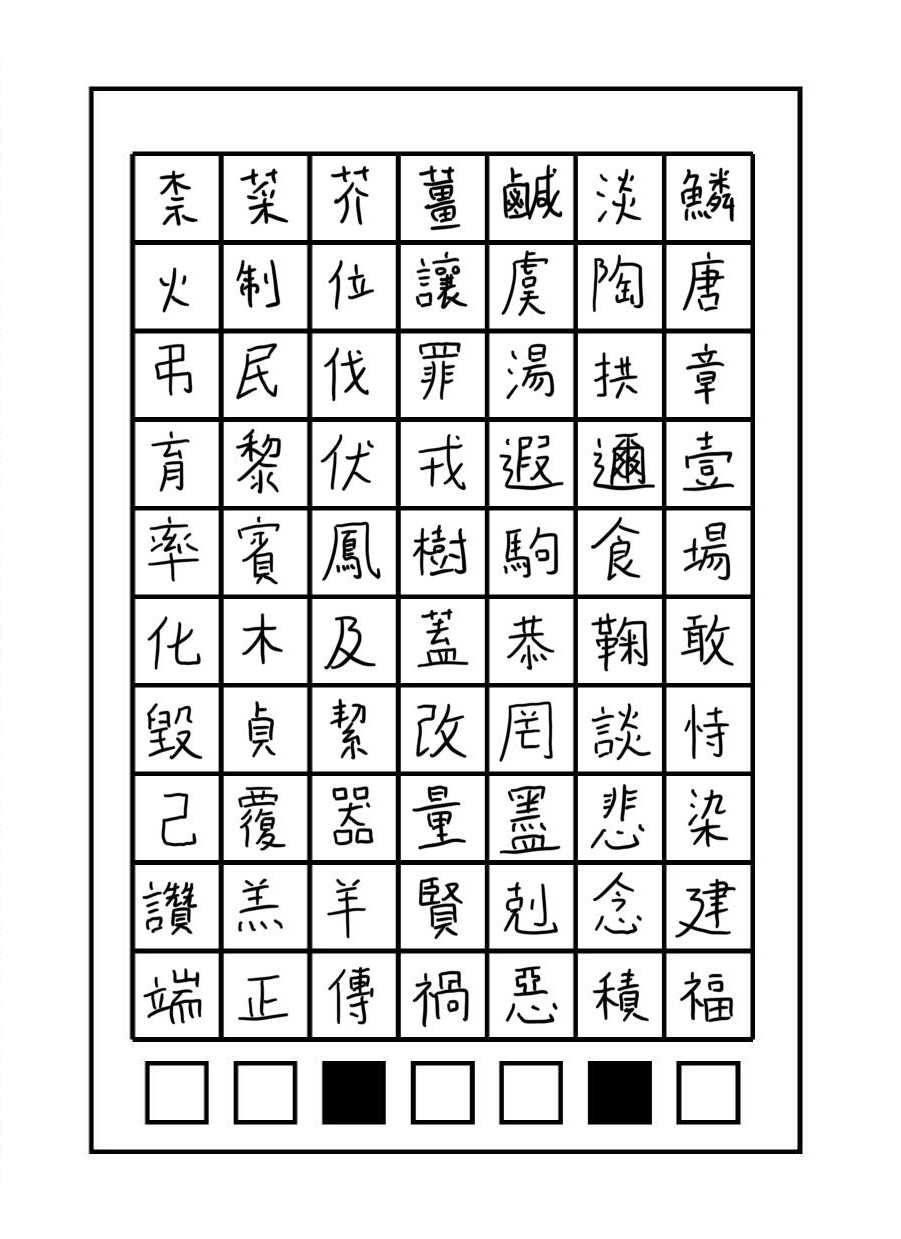 柰菜芥薑鹹淡鱗
火制位讓虞陶唐
弔民伐罪湯拱章
育黎伏戎遐邇壹
率賓鳳樹駒食場
化木及蓋恭鞠敢
毀貞絜改罔談恃
己覆器量墨悲染
讚羔羊賢剋念建
端正傳禍惡積福